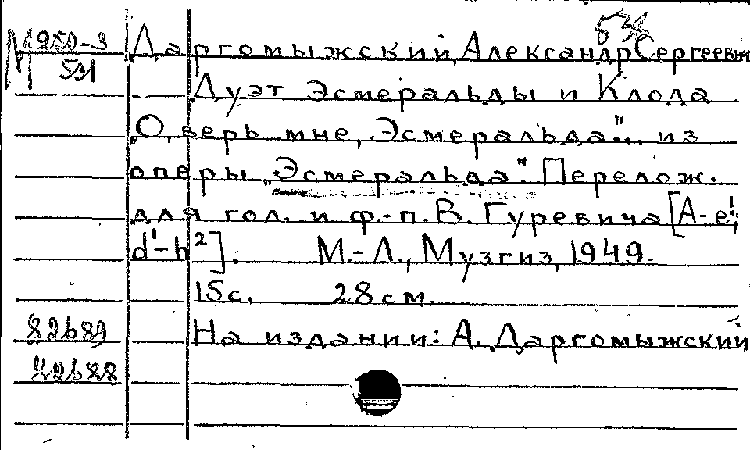 М 950-3
591
Даргомыжский, Александр Сергеевич
Дуэт Эсмеральды и Клода
„О, верь мне, Эсмеральда"... из
оперы „Эсмеральда". Перелож.
для гол. и ф.-п. В. Гуревича [А-е¹;
d¹-h²]. М.-Л., Музгиз, 1949.
15 с. 28 см.
На издании: А. Даргомыжский